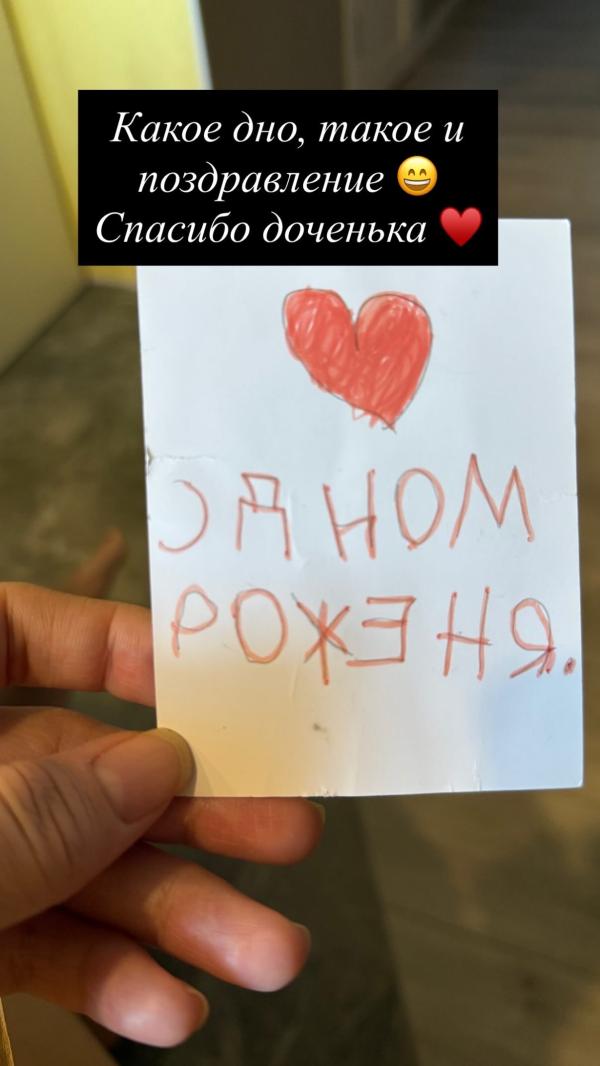 Какое дно, такое и
поздравление 😄
Спасибо доченька ♥️
С ДНОМ
РОЖЕНЯ..